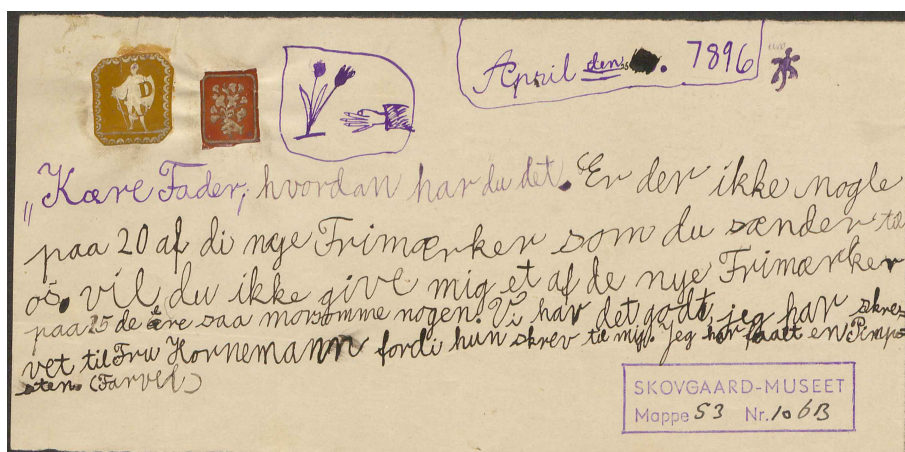 D
April den 7896
„Kære Fader, hvordan har du det. Er der ikke nogle
paa 20 af di nye Frimærker som du sænder til
os. vil du ikke give mig et af de nye Frimærker
paa 25 de ere saa morsomme nogen. Vi har det godt, jeg har skre-
vet til Fru Hornemann fordi hun skrev til mig. jeg har faaet en Pimp-
sten. (Farvel)
SKOVGAARD-MUSEET
Mappe 53 Nr. 106B